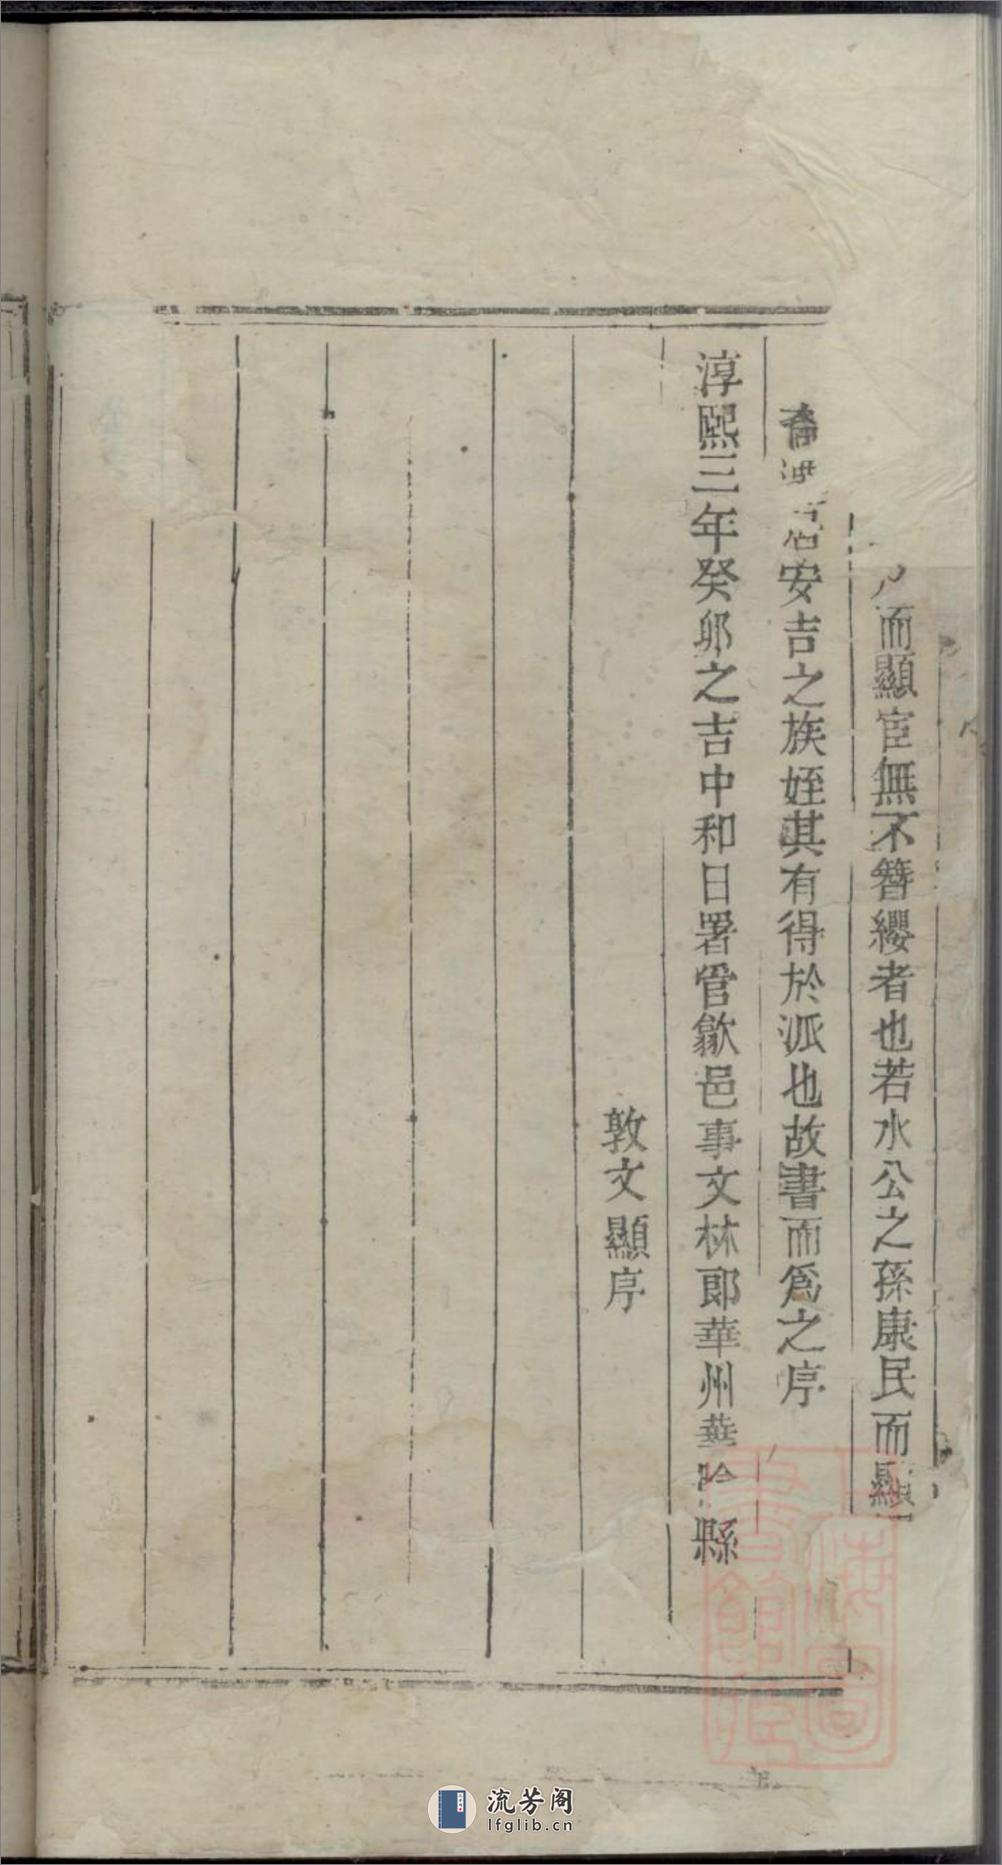 而顯宦無不簪纓者也若水公之孫康民而顯
喬 居安吉之族姪其有得於派也故書而為之序
淳熙三年癸卯之吉中和日署管歙邑事文林郎華州華陰縣
敦文顯序
上海圖書館藏
流芳阁
lfglib.cn